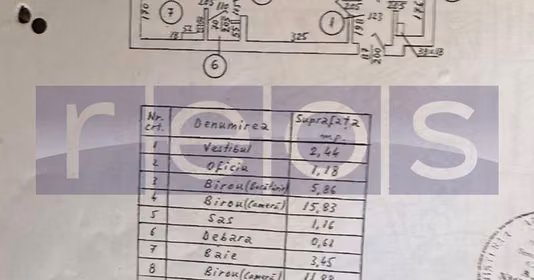 7
6
1
325
123
200
Nr. crt. Denumirea Suprafața mp.
1 Vestibul 2,44
2 Oficiu 1,18
3 Birou (Bucătărie) 5,86
4 Birou (Cameră) 15,83
5 Sas 1,16
6 Debara 0,61
7 Baie 3,45
8 Birou (Cameră) 11,88
rebs